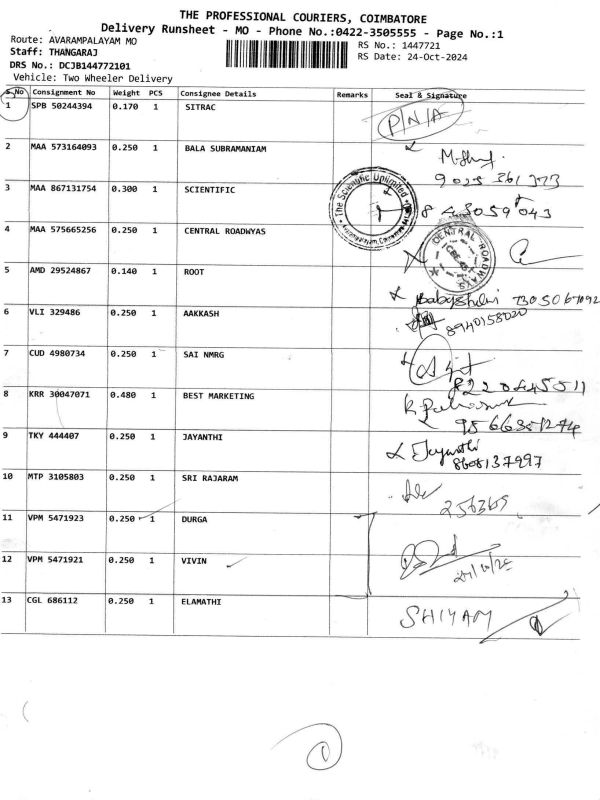 THE PROFESSIONAL COURIERS, COIMBATORE
Delivery Runsheet - MO - Phone No.:0422-3505555 - Page No.:1
Route: AVARAMPALAYAM MO
RS No.: 1447721
Staff: THANGARAJ
RS Date: 24-Oct-2024
DRS No.: DCJB144772101
Vehicle: Two Wheeler Delivery
S No Consignment No Weight PCS Consignee Details Remarks Seal & Signature
1 SPB 50244394 0.170 1 SITRAC P/N/A
2 MAA 573164093 0.250 1 BALA SUBRAMANIAM
3 MAA 867131754 0.300 1 SCIENTIFIC
The Scientific Uplimited
4 MAA 575665256 0.250 1 CENTRAL ROADWYAS
CENTRAL ROADWAYS
5 AMD 29524867 0.140 1 ROOT
6 VLI 329486 0.250 1 AAKKASH
8940158020
7 CUD 4980734 0.250 1 SAI NMRG
8220645511
8 KRR 30047071 0.480 1 BEST MARKETING
9566351274
9 TKY 444407 0.250 1 JAYANTHI Jayanthi
8608137997
10 MTP 3105803 0.250 1 SRI RAJARAM
256369
11 VPM 5471923 0.250 1 DURGA
12 VPM 5471921 0.250 1 VIVIN
13 CGL 686112 0.250 1 ELAMATHI SHIYAM
1